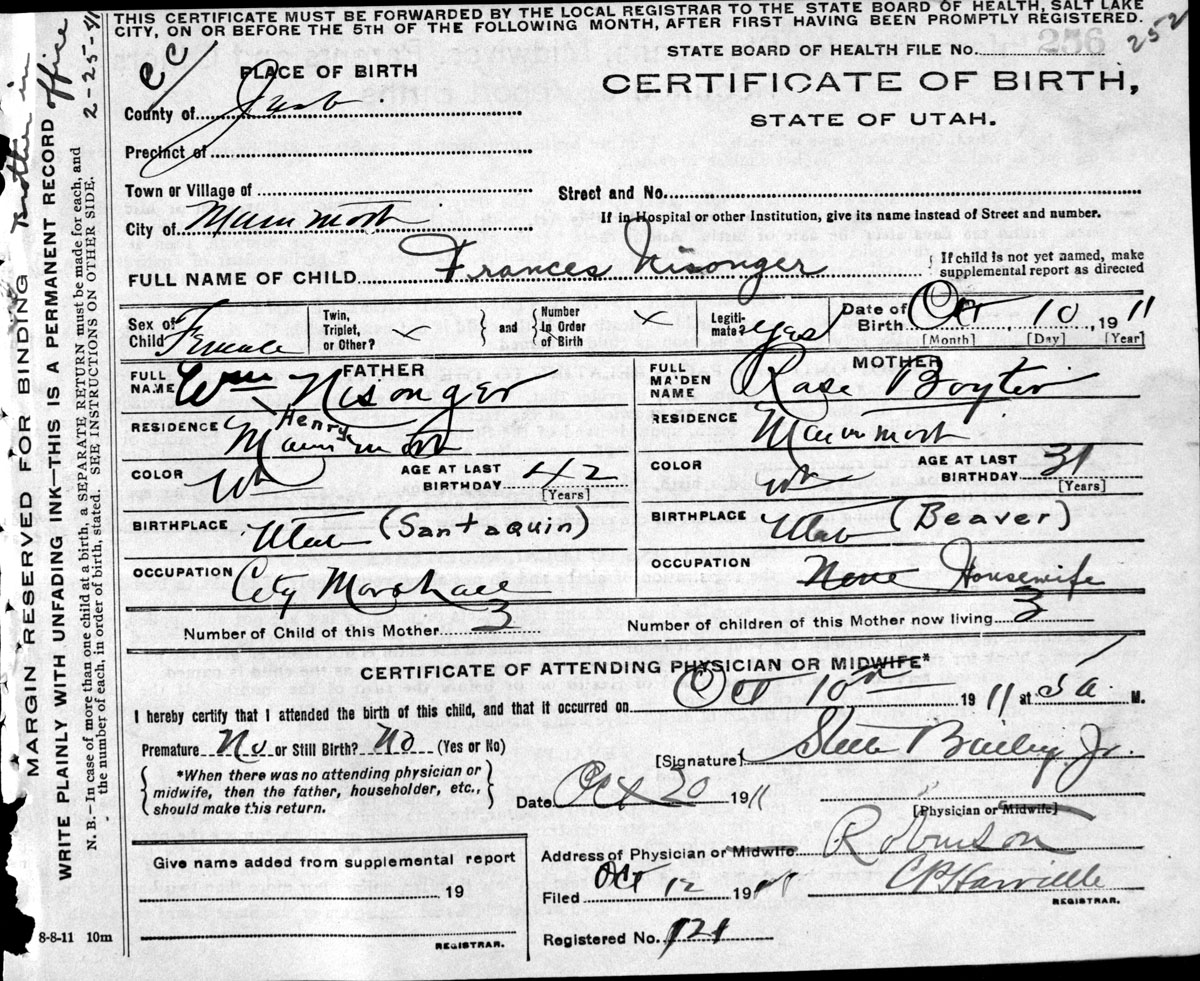 THIS CERTIFICATE MUST BE FORWARDED BY THE LOCAL REGISTRAR TO THE STATE BOARD OF HEALTH, SALT LAKE
CITY, ON OR BEFORE THE 5TH OF THE FOLLOWING MONTH, AFTER FIRST HAVING BEEN PROMPTLY REGISTERED.
STATE BOARD OF HEALTH FILE No. 256 252
CERTIFICATE OF BIRTH,
STATE OF UTAH.
CC
PLACE OF BIRTH
County of Juab
Precinct of
Town or Village of
Street and No.
City of Mammoth
If in Hospital or other Institution, give its name instead of Street and number.
FULL NAME OF CHILD Frances Nisonger
{ If child is not yet named, make
supplemental report as directed
Sex of Child Female
Twin, Triplet, or Other? x
} and {
Number in Order of Birth x
Legitimate? yes
Date of Birth Oct 10, 1911
[Month] [Day] [Year]
FATHER
FULL NAME Wm Henry Nisonger
MOTHER
FULL MAIDEN NAME Rose Boyter
RESIDENCE Mammoth
RESIDENCE Mammoth
COLOR Wh AGE AT LAST BIRTHDAY 42 [Years]
COLOR Wh AGE AT LAST BIRTHDAY 31 [Years]
BIRTHPLACE Utah (Santaquin)
BIRTHPLACE Utah (Beaver)
OCCUPATION City Marshall
OCCUPATION None Housewife
Number of Child of this Mother 3
Number of children of this Mother now living 3
CERTIFICATE OF ATTENDING PHYSICIAN OR MIDWIFE*
I hereby certify that I attended the birth of this child, and that it occurred on Oct 10th 1911 at 5 a M.
Premature No or Still Birth? No (Yes or No)
[Signature] Steele Bailey Jr.
{ *When there was no attending physician or
midwife, then the father, householder, etc.,
should make this return. }
Date Oct 20 1911
[Physician or Midwife]
Give name added from supplemental report
19
REGISTRAR.
Address of Physician or Midwife Robinson
Filed Oct 12 1911
REGISTRAR.
Registered No. 121
8-8-11 10m
MARGIN RESERVED FOR BINDING Brother in
WRITE PLAINLY WITH UNFADING INK—THIS IS A PERMANENT RECORD office
N. B.—In case of more than one child at a birth, a SEPARATE RETURN must be made for each, and 2-25-41
the number of each, in order of birth, stated. SEE INSTRUCTIONS ON OTHER SIDE.